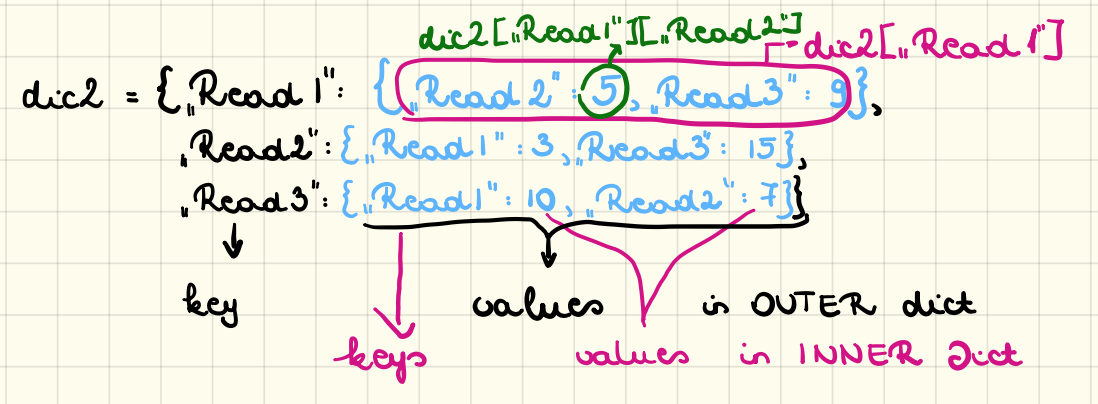 dic2[„Read1"][„Read2"]
dic2[„Read1"]
dic2 = {„Read1": {„Read2": 5, „Read3": 9},
„Read2": {„Read1": 3, „Read3": 15},
„Read3": {„Read1": 10, „Read2": 7}}
key values in OUTER dict
keys values in INNER Dict